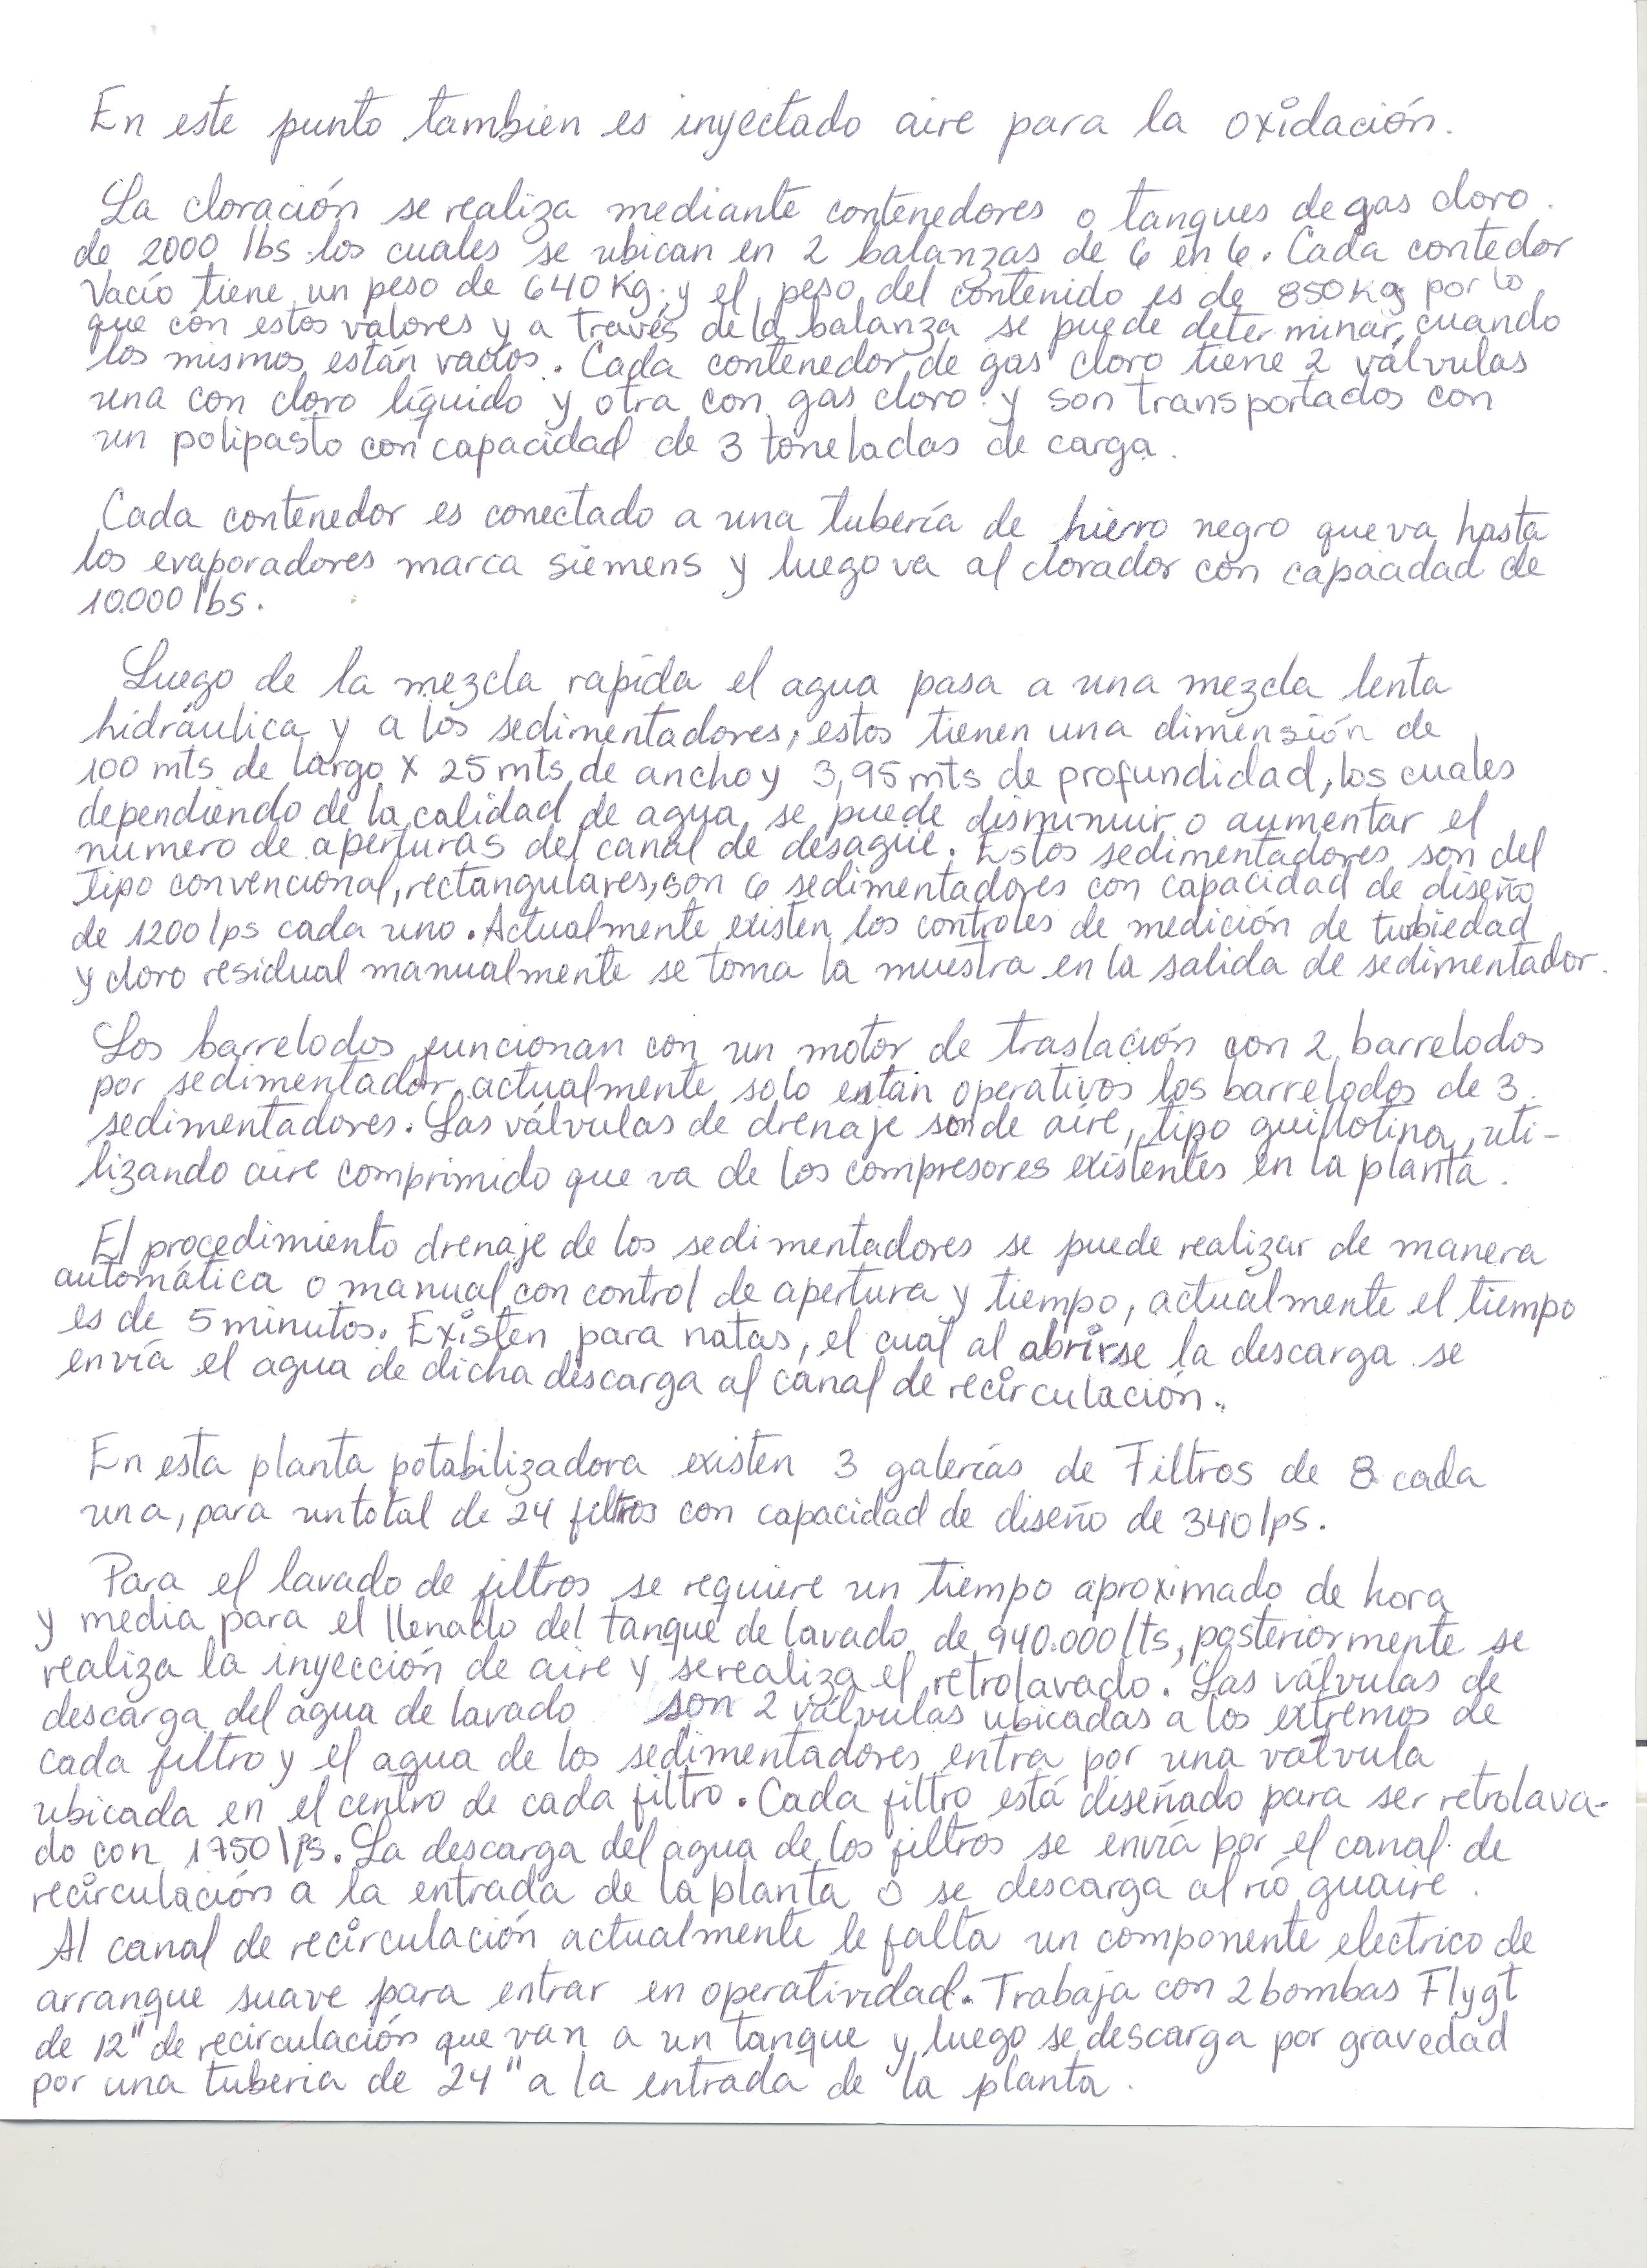 En este punto tambien es inyectado aire para la oxidación.
La cloración se realiza mediante contenedores o tanques de gas cloro.
de 2000 lbs los cuales se ubican en 2 balanzas de 6 en 6. Cada contedor
vacío tiene un peso de 640 Kg. y el peso del contenido es de 850 Kg por lo
que con estos valores y a través de la balanza se puede determinar, cuando
los mismos están vacíos. Cada contenedor de gas cloro tiene 2 válvulas
una con cloro líquido y otra con gas cloro y son transportados con
un polipasto con capacidad de 3 toneladas de carga.
Cada contenedor es conectado a una tubería de hierro negro que va hasta
los evaporadores marca siemens y luego va al clorador con capacidad de
10.000 lbs.
Luego de la mezcla rapida el agua pasa a una mezcla lenta
hidráulica y a los sedimentadores, estos tienen una dimensión de
100 mts de largo x 25 mts de ancho y 3,95 mts de profundidad, los cuales
dependiendo de la calidad de agua se puede disminuir o aumentar el
numero de aperturas del canal de desagüe. Estos sedimentadores son del
tipo convencional, rectangulares, son 6 sedimentadores con capacidad de diseño
de 1200 lps cada uno. Actualmente existen los controles de medición de turbiedad
y cloro residual manualmente se toma la muestra en la salida de sedimentador.
Los barrelodos funcionan con un motor de traslación con 2 barrelodos
por sedimentador, actualmente solo están operativos los barrelodos de 3
sedimentadores. Las válvulas de drenaje son de aire, tipo guillotina, uti-
lizando aire comprimido que va de los compresores existentes en la planta.
El procedimiento drenaje de los sedimentadores se puede realizar de manera
automática o manual con control de apertura y tiempo, actualmente el tiempo
es de 5 minutos. Existen para natas, el cual al abrirse la descarga se
envía el agua de dicha descarga al canal de recirculación.
En esta planta potabilizadora existen 3 galerías de Filtros de 8 cada
una, para un total de 24 filtros con capacidad de diseño de 340 lps.
Para el lavado de filtros se requiere un tiempo aproximado de hora
y media para el llenado del tanque de lavado de 940.000 lts, posteriormente se
realiza la inyección de aire y se realiza el retrolavado. Las válvulas de
descarga del agua de lavado son 2 válvulas ubicadas a los extremos de
cada filtro y el agua de los sedimentadores entra por una valvula
ubicada en el centro de cada filtro. Cada filtro está diseñado para ser retrolava-
do con 1750 lps. La descarga del agua de los filtros se envía por el canal de
recirculación a la entrada de la planta o se descarga al río guaire.
Al canal de recirculación actualmente le falta un componente electrico de
arranque suave para entrar en operatividad. Trabaja con 2 bombas Flygt
de 12" de recirculación que van a un tanque y luego se descarga por gravedad
por una tuberia de 24" a la entrada de la planta.